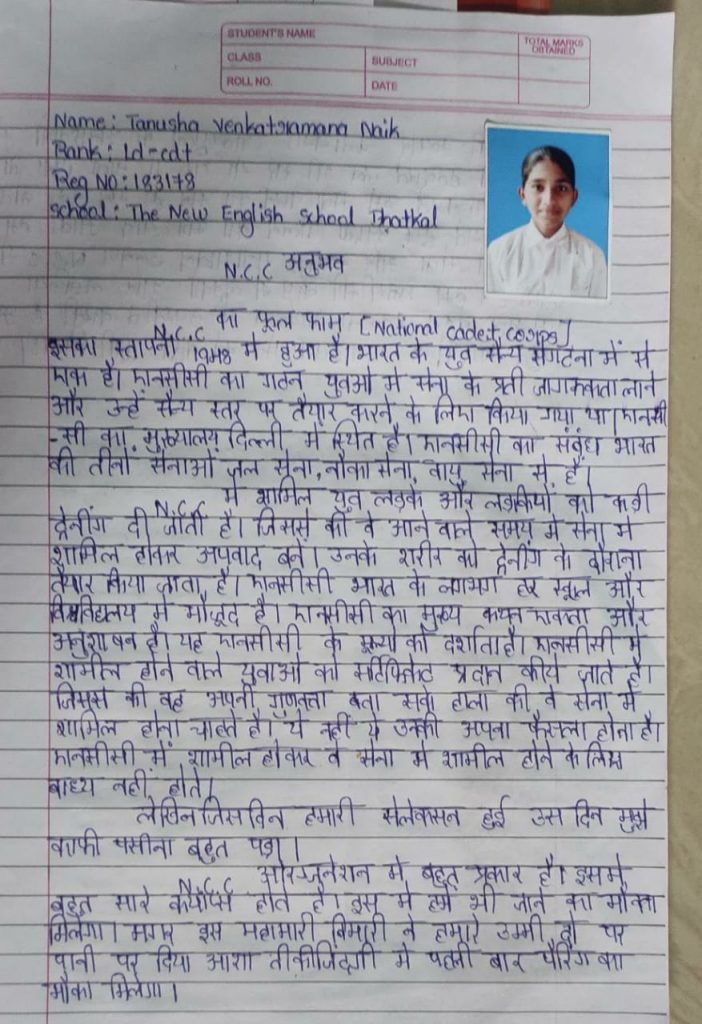 STUDENT'S NAME
TOTAL MARKS OBTAINED
CLASS
SUBJECT
ROLL NO.
DATE
Name: Tanusha Venkatramana Naik
Rank: Ld-cdt
Reg NO: 183178
School: The New English School Bhatkal
N.C.C अनुभव
N.C.C का फूल फाम [National Cadet Corps]
इसका स्तापना 1948 मे हुआ है। भारत के युव सैन्य संगटना में से
एक है। एनसीसी का गठन युवओ मे सेना के प्रती जागरुकता लाने
और उन्हे सैन्य स्तर पर तैयार करने के लिए किया गया था। एनसी
-सी का मुख्यालय दिल्ली में स्थित है। एनसीसी का संबंध भारत
की तीनो सेनाओं जल सेना, नौका सेना, वायु सेना से है।
N.C.C मे शामिल युव लड़के और लड़कियो को कड़ी
ट्रेनींग दी जाती है। जिससे की वे आने वाले समय मे सेना मे
शामिल होकर अपवाद बने। उनके शरीर को ट्रेनींग के दौरान
तैयार किया जाता है। एनसीसी भारत के लगभग हर स्कूल और
विश्वविद्यलय मे मौजूद है। एनसीसी का मुख्य कथन एकता और
अनुशाषन है। यह एनसीसी के मूल्यो को दर्शाता है। एनसीसी मे
शामील होने वाले युवाओ को सर्टिफिकेट प्रदान कीये जाते है।
जिससे की वह अपनी गुणवत्ता बता सके हाला की वे सेना मे
शामिल होना चाहते है। ये नहीं ये उनकी अपना फैसला होना है।
एनसीसी में शामील होकर वे सेना मे शामील होने के लिए
बाध्य नही होते।
लेकिन जिस दिन हमारी सेलेकसन हुई उस दिन मुझे
काफी पसीना बहुत पड़ा।
N.C.C ओरगजुनेशन मे बहुत प्रकार है। इसमे
बहुत सारे कयांप्स होते है। इस मे हमे भी जाने का मौका
मिलेगा। मगर इस महामारी बिमारी ने हमारे उम्मी दो पर
पानी पर दिया आशा की जिंदगी मे पहली बार का
मौका मिलेगा।